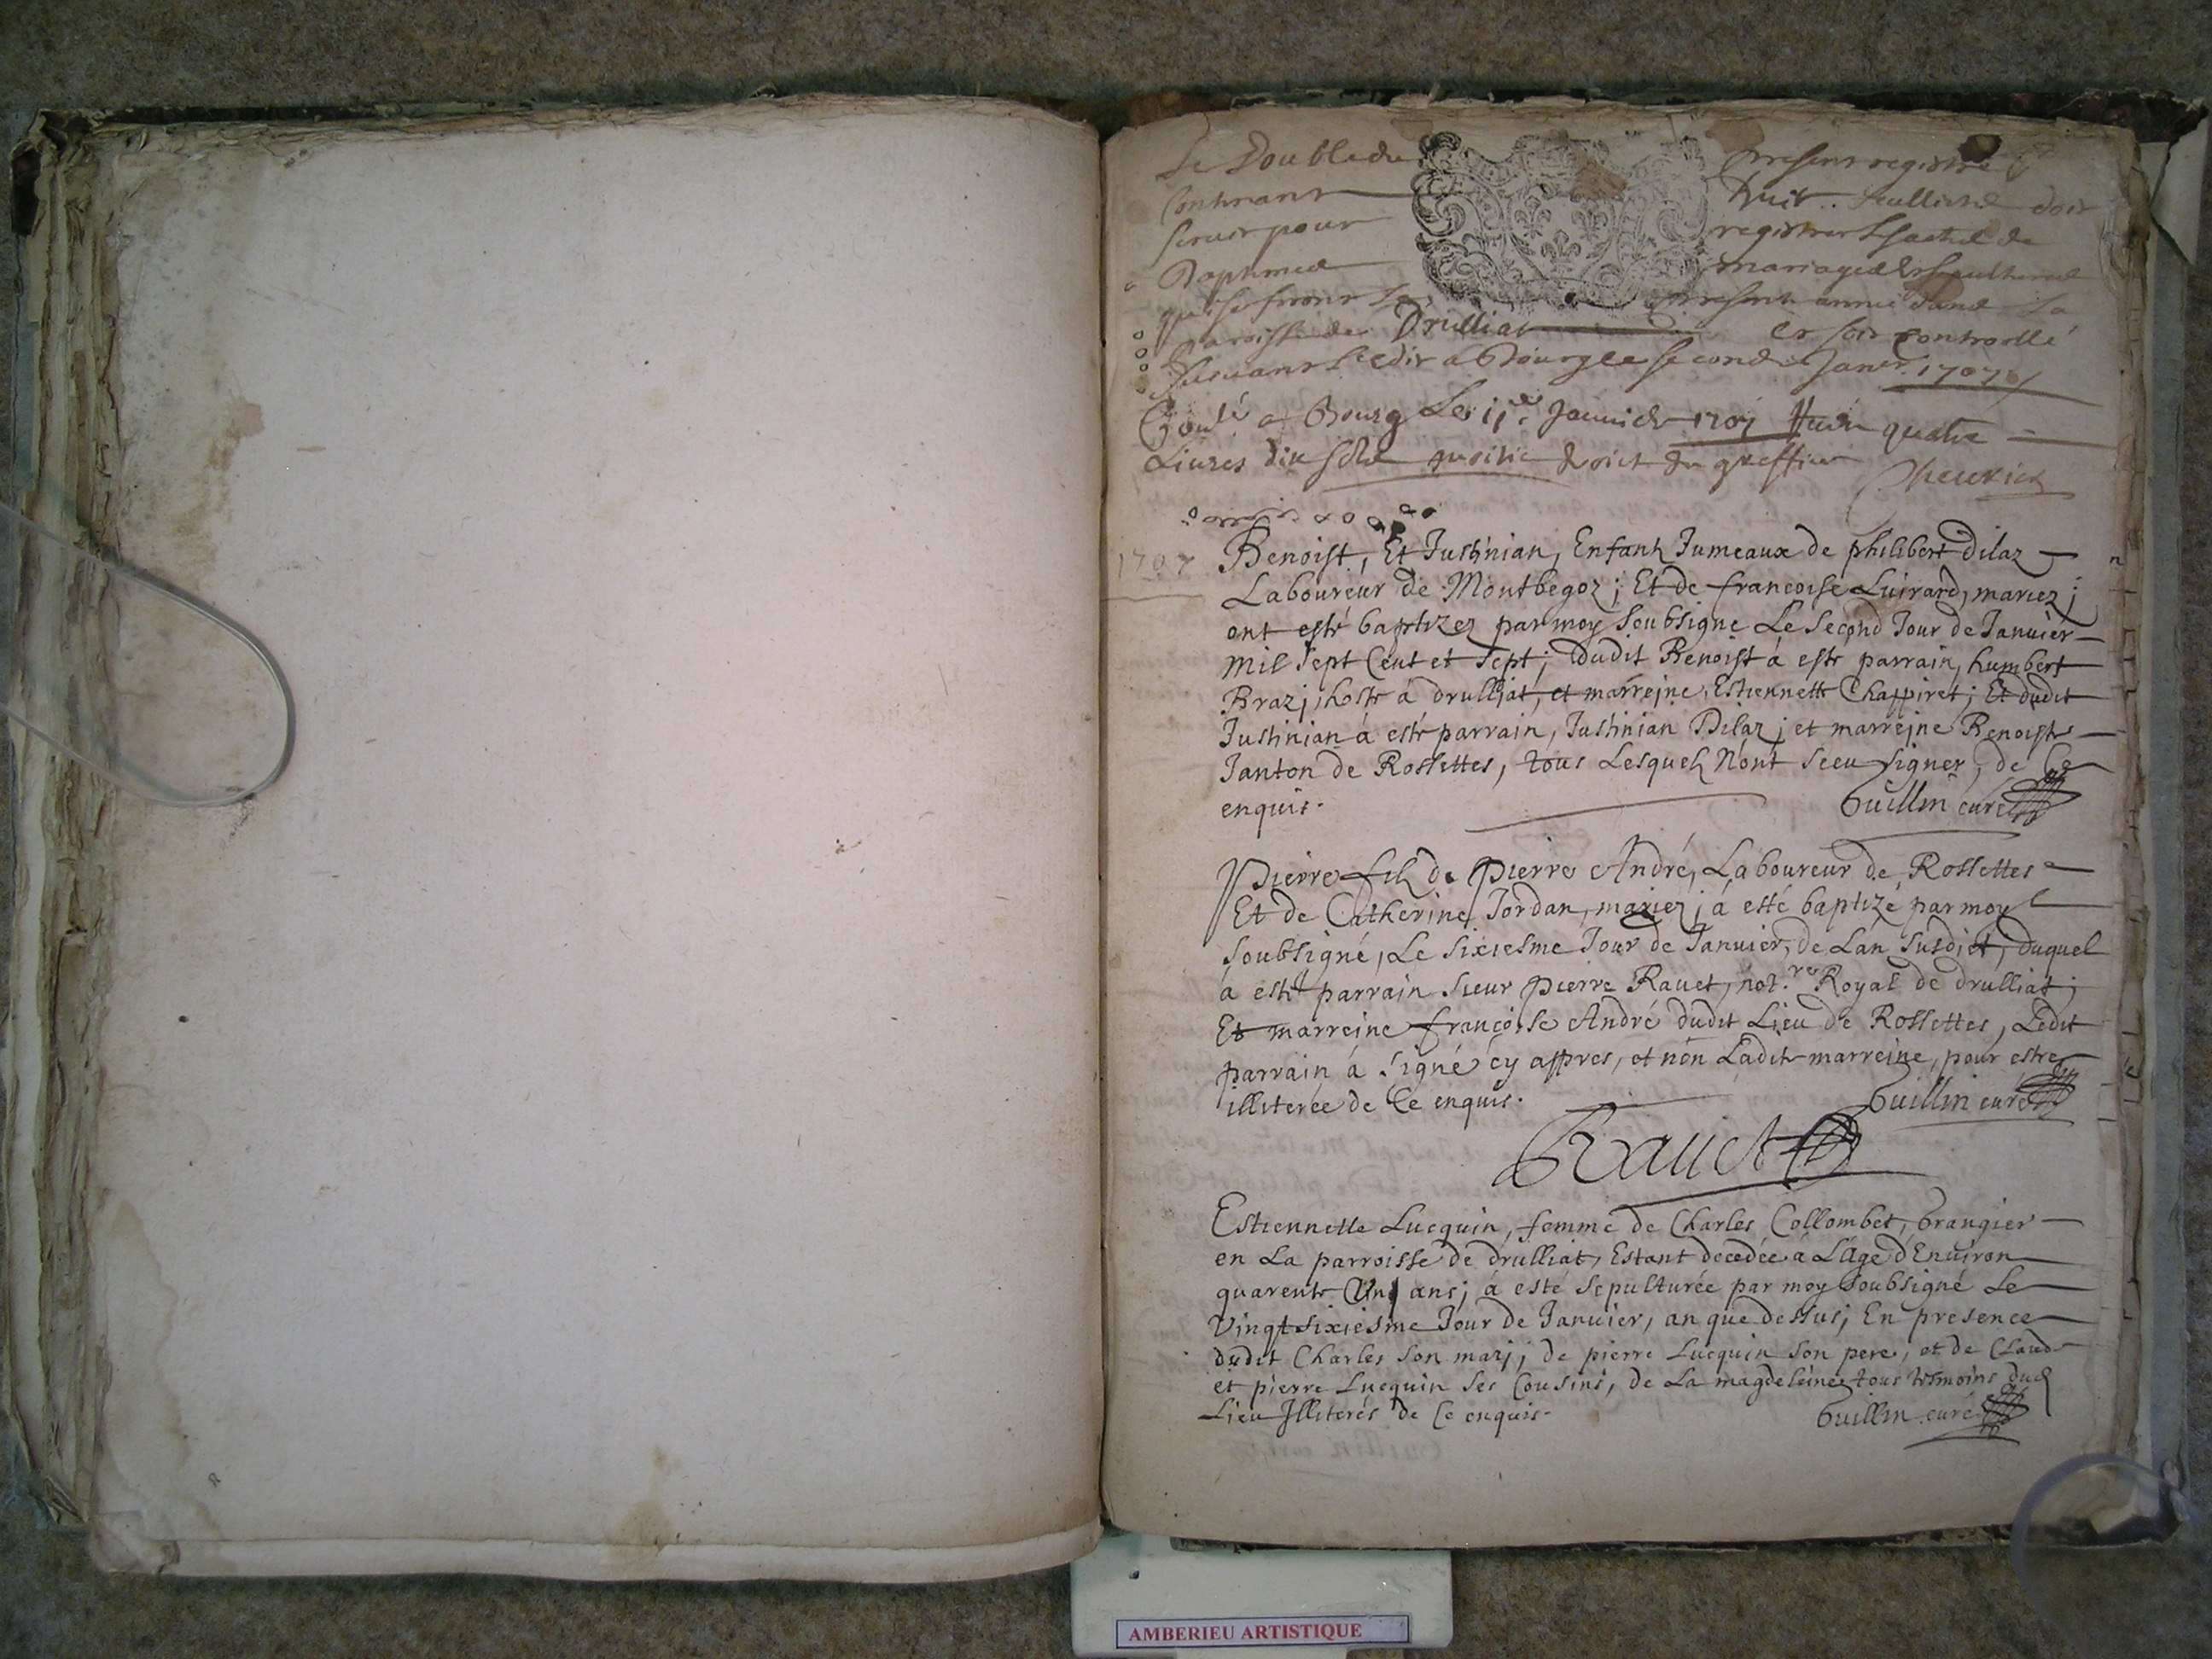 Le Double du present registre
Contenant huit feullietz doit
servir pour registrer les actes de
Baptmes mariages et sepultures
qui se feront la presente année dans la
paroisse de Drulliat et soit controollé
suivant l'edit a Bourg le second Janer 1707
Conlé a Bourg Le 11e Januier 1707 quatre
Liures dix sols droict du greffier
1707 Benoist, Et Justinian, Enfants Jumeaux de philibert Dilaz
Laboureur de Montbegoz; Et de francoise Luirard, mariez;
ont esté baptizez par moy soubsigne Le second Jour de Januier
mil sept Cent et sept; dudit Benoist a esté parrain, humbert
Braz, hoste à drulliat, et marreine, Estiennette Chappiret; Et dudit
Justinian à esté parrain, Justinian Dilaz; et marreine Benoiste
Janton de Rossettes, tous Lesquels N'ont sceu signer, de Ce
enquis. Guillin curé
Pierre fils de Pierre André, Laboureur de Rossettes
Et de Catherine Jordan, mariez; à esté baptizé par moy
soubsigné, Le sixiesme Jour de Januier, de Lan susdict, duquel
à esté parrain sieur pierre Rauet, not.re Royal de drulliat;
Et marreine françoise André dudit Lieu de Rossettes, Ledit
parrain à signé cy appres, et non Ladite marreine, pour estre
illiterée de Ce enquis. Guillin curé
Rauet
Estiennette Lucquin, femme de Charles Collombet, Grangier
en La parroisse de drulliat, Estant decedée à L'âge d'Enuiron
quarente Cinq ans; à esté sepulturée par moy soubsigné Le
Vingt sixiesme Jour de Januier, an que dessus; En presence
dudit Charles son mari; de pierre Lucquin son pere, et de Claude
et pierre Lucquin ses Cousins, de La magdeleine, tous tesmoins dud
Lieu Illiterés de Ce enquis. Guillin curé
AMBERIEU ARTISTIQUE